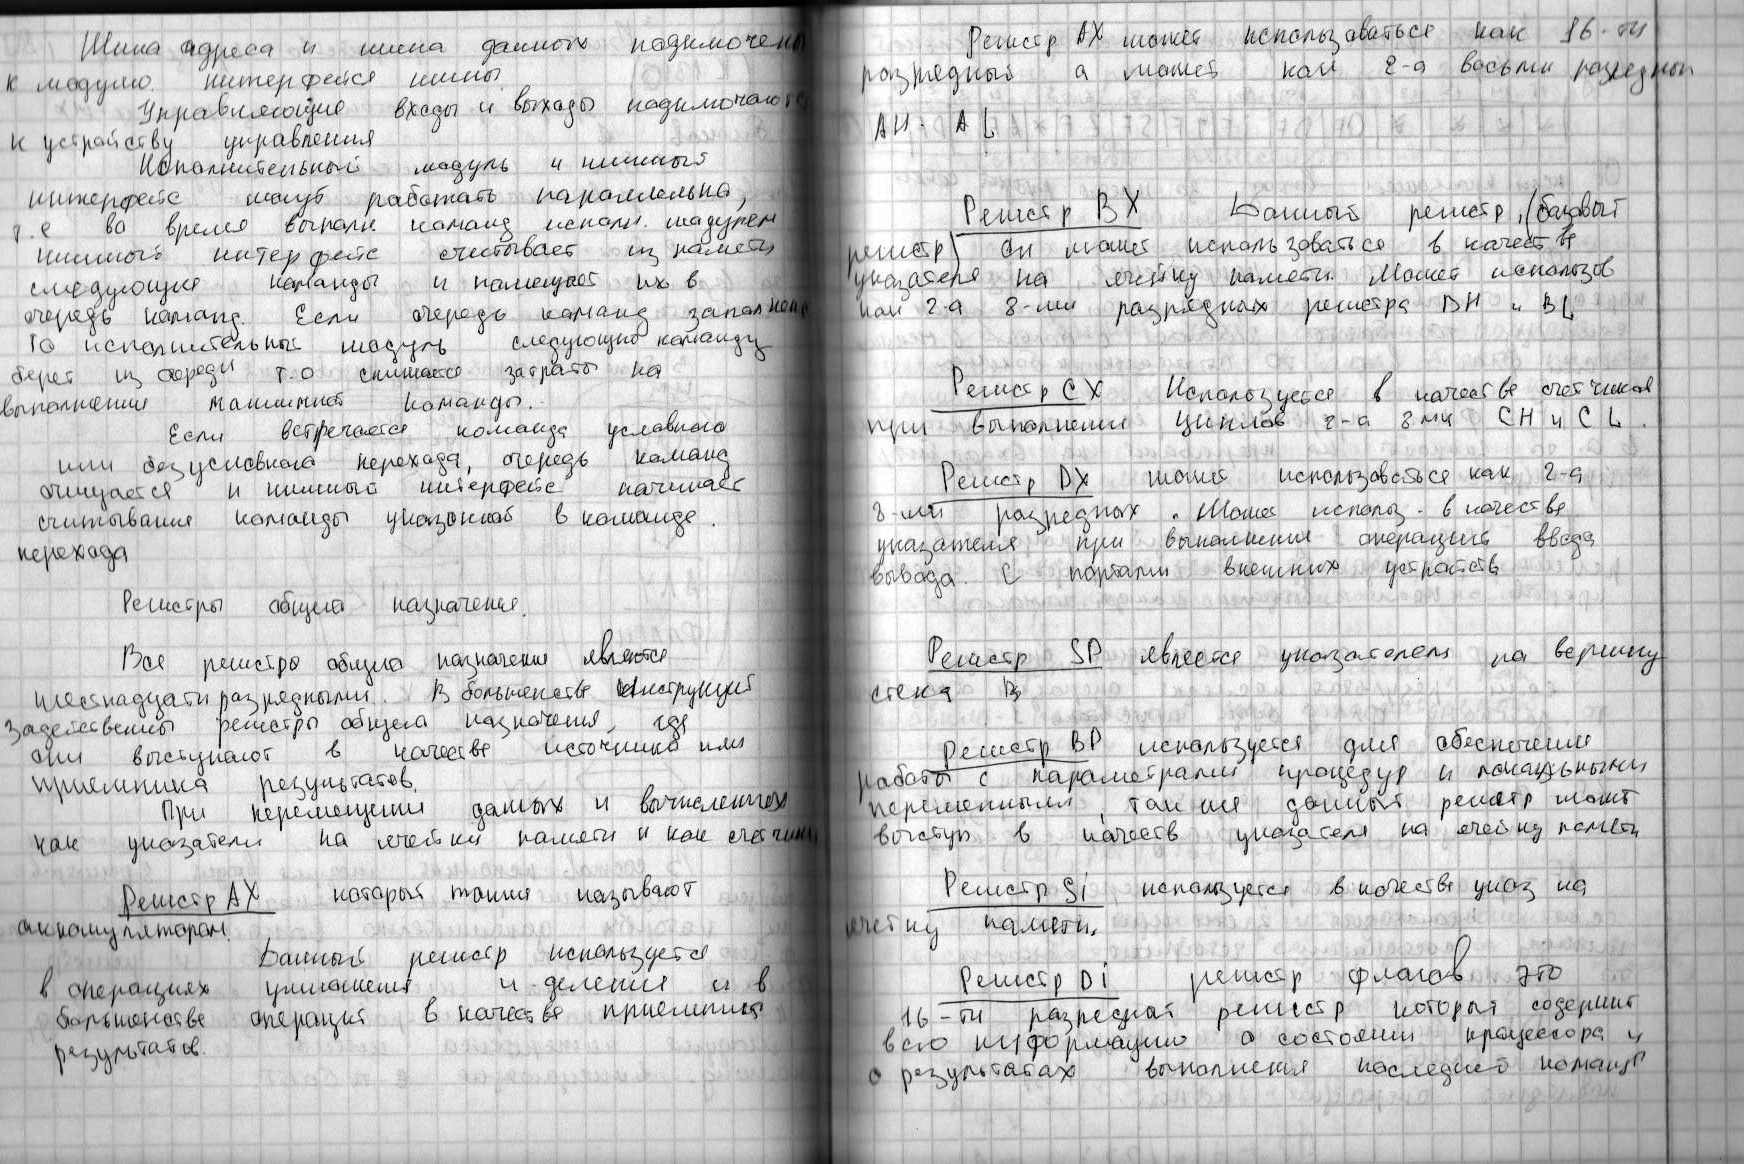 Шина адреса и шина данных подключены
к модулю интерфейса шины.
Управляющие входы и выходы подключаются
к устройству управления
Исполнительный модуль и шинный
интерфейс могут работать параллельно,
т.е во время выполн. команд исполн. модулем
шинный интерфейс считывает из памяти
следующие команды и помещает их в
очередь команд. Если очередь команд заполнена
то исполнительный модуль следующую команду
берет из очереди т.о снижаются затраты на
выполнение машинной команды.
Если встречается команда условного
или безусловного перехода, очередь команд
очищается и шинный интерфейс начинает
считывание команды указанной в команде.
перехода
Регистры общего назначения.
Все регистры общего назначения являются
шестнадцати разрядными. В большенстве инструкций
задействованы регистры общего назначения, где
они выступают в качестве источника или
приемника результатов.
При перемещении данных и вычислениях
как указатели на ячейки памяти и как счетчики
Регистр AX который также называют
аккомулятором.
Данный регистр используется
в операциях умножения и деления и в
большенстве операций в качестве приемника
результатов.
Регистр AX может использоваться как 16-ти
разрядный а может как 2-а восьми разрядных
AH: AL
Регистр BX Данный регистр, (базовый
регистр) он может использоваться в качестве
указателя на ячейку памяти. Может использов
как 2-а 8-ми разрядных регистра BH и BL
Регистр CX Используется в качестве счетчиков
при выполнении циклов 2-а 8ми CH и CL.
Регистр DX может использоваться как 2-а
8-ми разрядных. Может использ. в качестве
указателя при выполнении операций ввода
вывода. С портами внешних устройств
Регистр SP является указателем на вершину
стека В
Регистр BP используется для обеспечения
работы с параметрами процедур и локальными
переменными, так же данный регистр может
выступ в качеств указателя на ячейку памяти
Регистр Si используется в качестве указ на
ячейку памяти.
Регистр Di регистр флагов это
16-ти разредный регистр который содержит
всю информацию о состоянии процессора и
о результатах выполнения последней команды